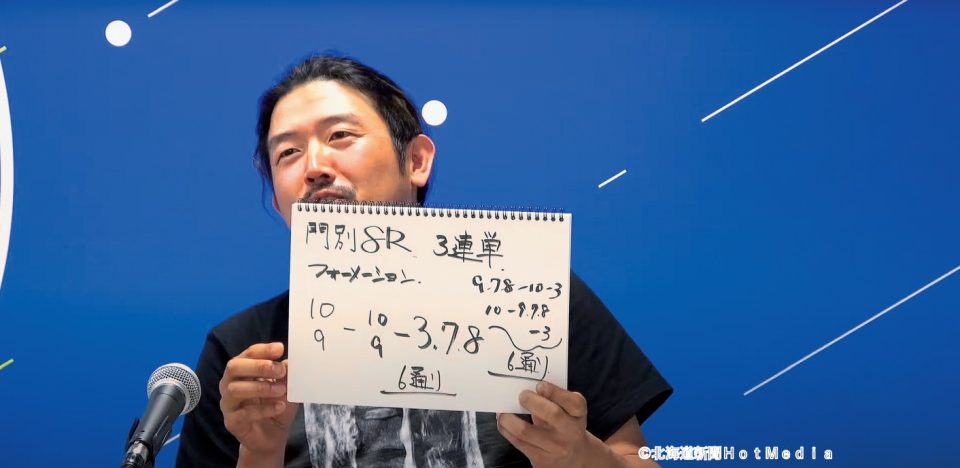 門別8R 3連単
フォーメーション.
10
9
-
10
9
-3.7.8
6通り
9.7.8-10-3
10-9.7.8
-3
6通り
©北海道新聞HotMedia